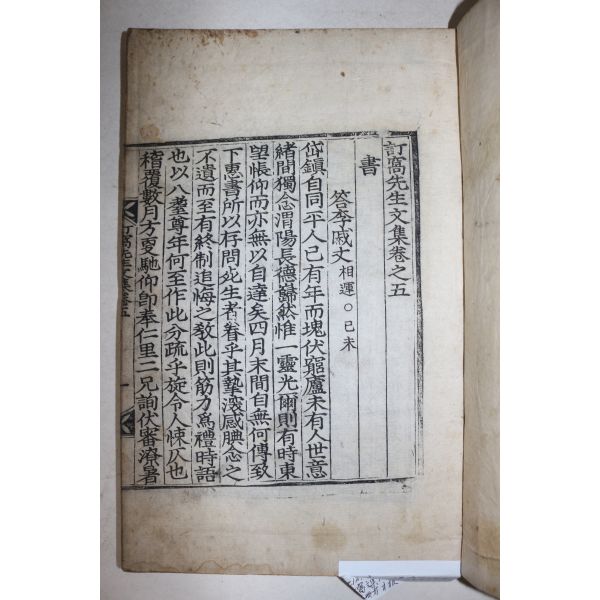 訂窩先生文集卷之五
書
答李戚丈 相運○己未
鎭自同平人已有年而塊伏窮廬未有人世意
緖間獨念渭陽長德巋然惟一靈光爾則有時東
望悵仰而亦無以自達矣四月末間自無何傳致
下惠書所以存問死生者眷乎其摯深感腆念之
不遺而至有終制追悔之敎此則筋力爲禮時語
也以八耋尊年何至作此分疏乎旋令人悚仄也
稽覆數月方夏馳仰卽奉仁里二兄詢伏審濟暑
訂窩先生文集卷五 一